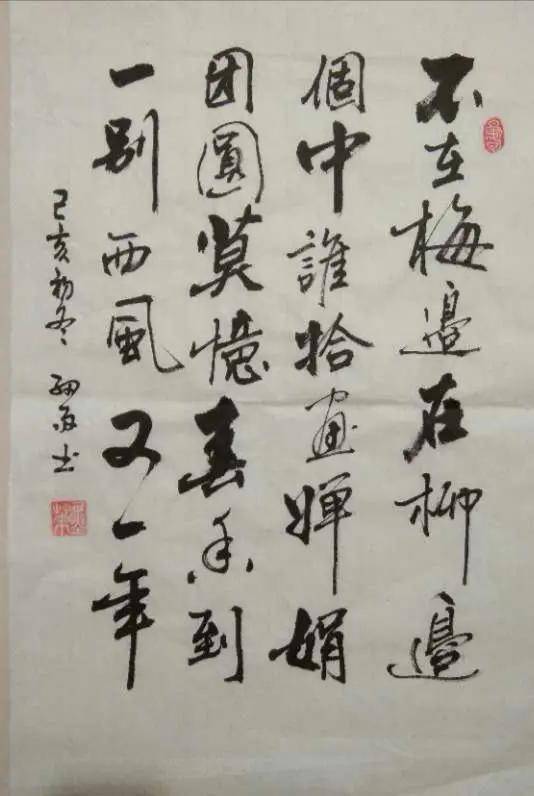 不在梅邊在柳邊
個中誰拾畫嬋娟
团圓莫憶春香到
一别西風又一年
己亥初冬